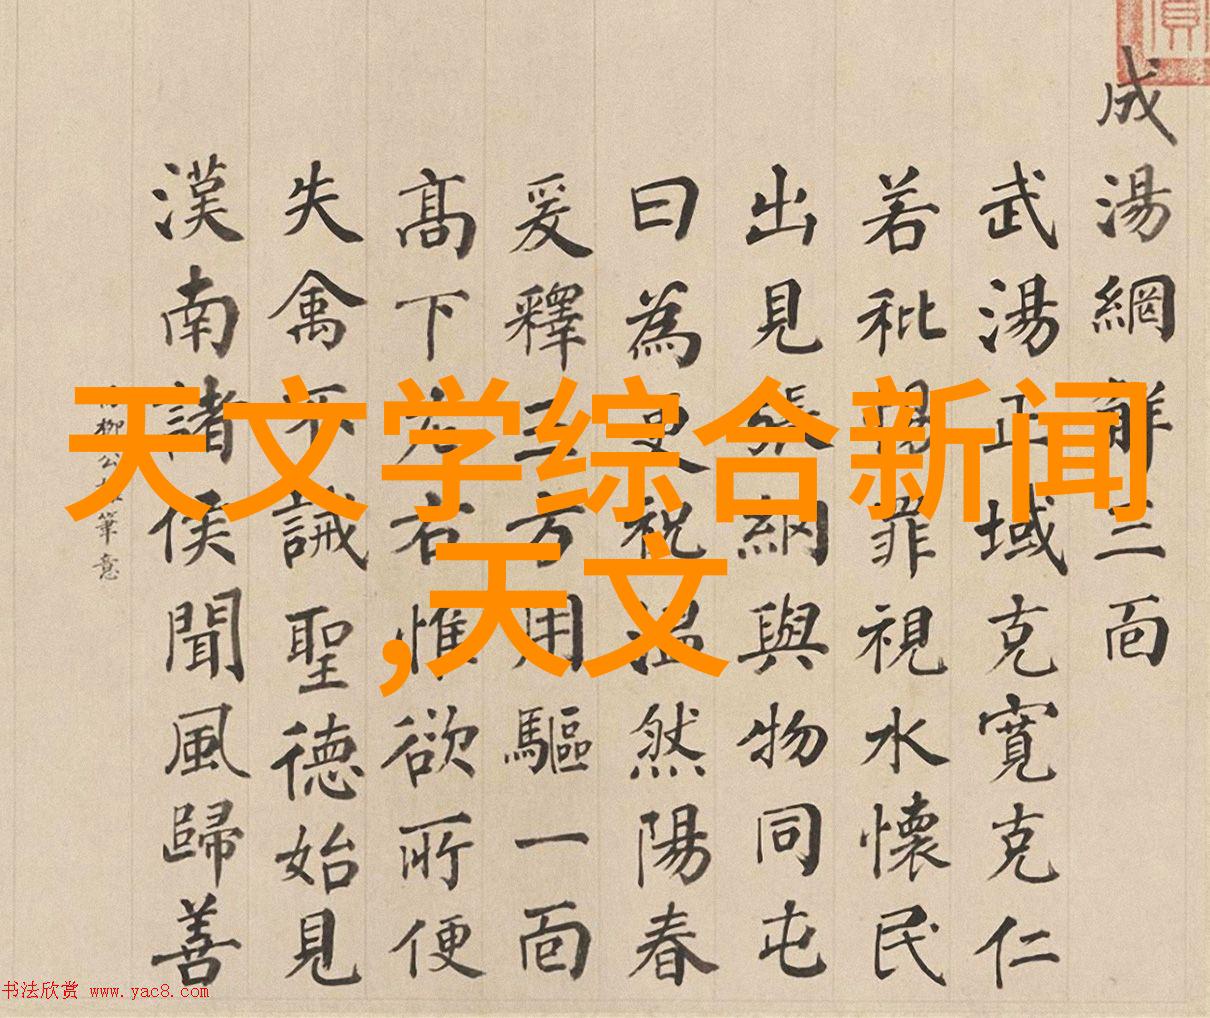 成湯網解三面
武湯正域克寬克仁
若秕錫罪視水懷民
出見張網與物同屯
曰為更祝溫然陽春
爰釋三方用驅一面
高下左右惟欲所便
失禽不誡聖德始見
漢南諸侯聞風歸善
柳公 筆意
天文学综合新闻
,天文
书法欣赏 www.yac8.com